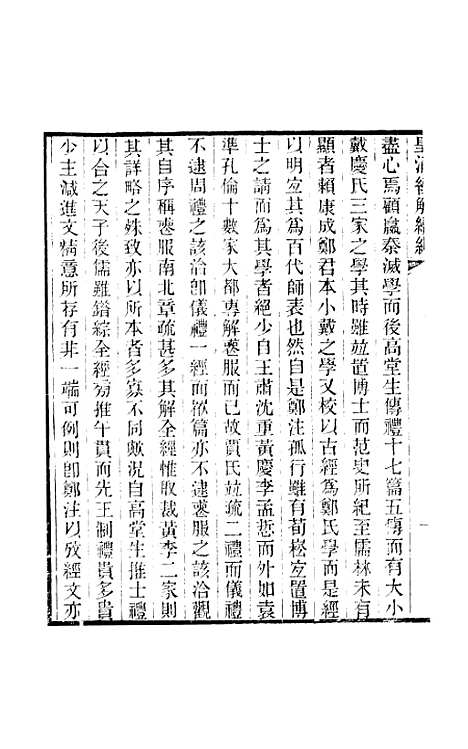 皇清經解續編
盡心焉顧嬴秦滅學而後高堂生傳禮十七篇五傳而有大小
戴慶氏三家之學其時雖竝置博士而范史所紀至儒林未有
顯者賴康成鄭君本小戴之學又校以古經爲鄭氏學而是經
以明宐其爲百代師表也然自是鄭注孤行雖有荀崧宐置博
士之請而爲其學者絕少自王肅沈重黃慶李孟悊而外如袁
準孔倫十數家大都專解喪服而已故賈氏竝疏二禮而儀禮
不逮周禮之該洽卽儀禮一經而㡿篇亦不逮喪服之該洽觀
其自序稱喪服南北章疏甚多其解全經惟取裁黃李二家則
其詳略之殊致亦以所本者多寡不同歟況自高堂生推士禮
以合之天子後儒雖錯綜全經㫄推午貫而先王制禮貴多貴
少主減進文精意所存有非一端可例則卽鄭注以攷經文亦